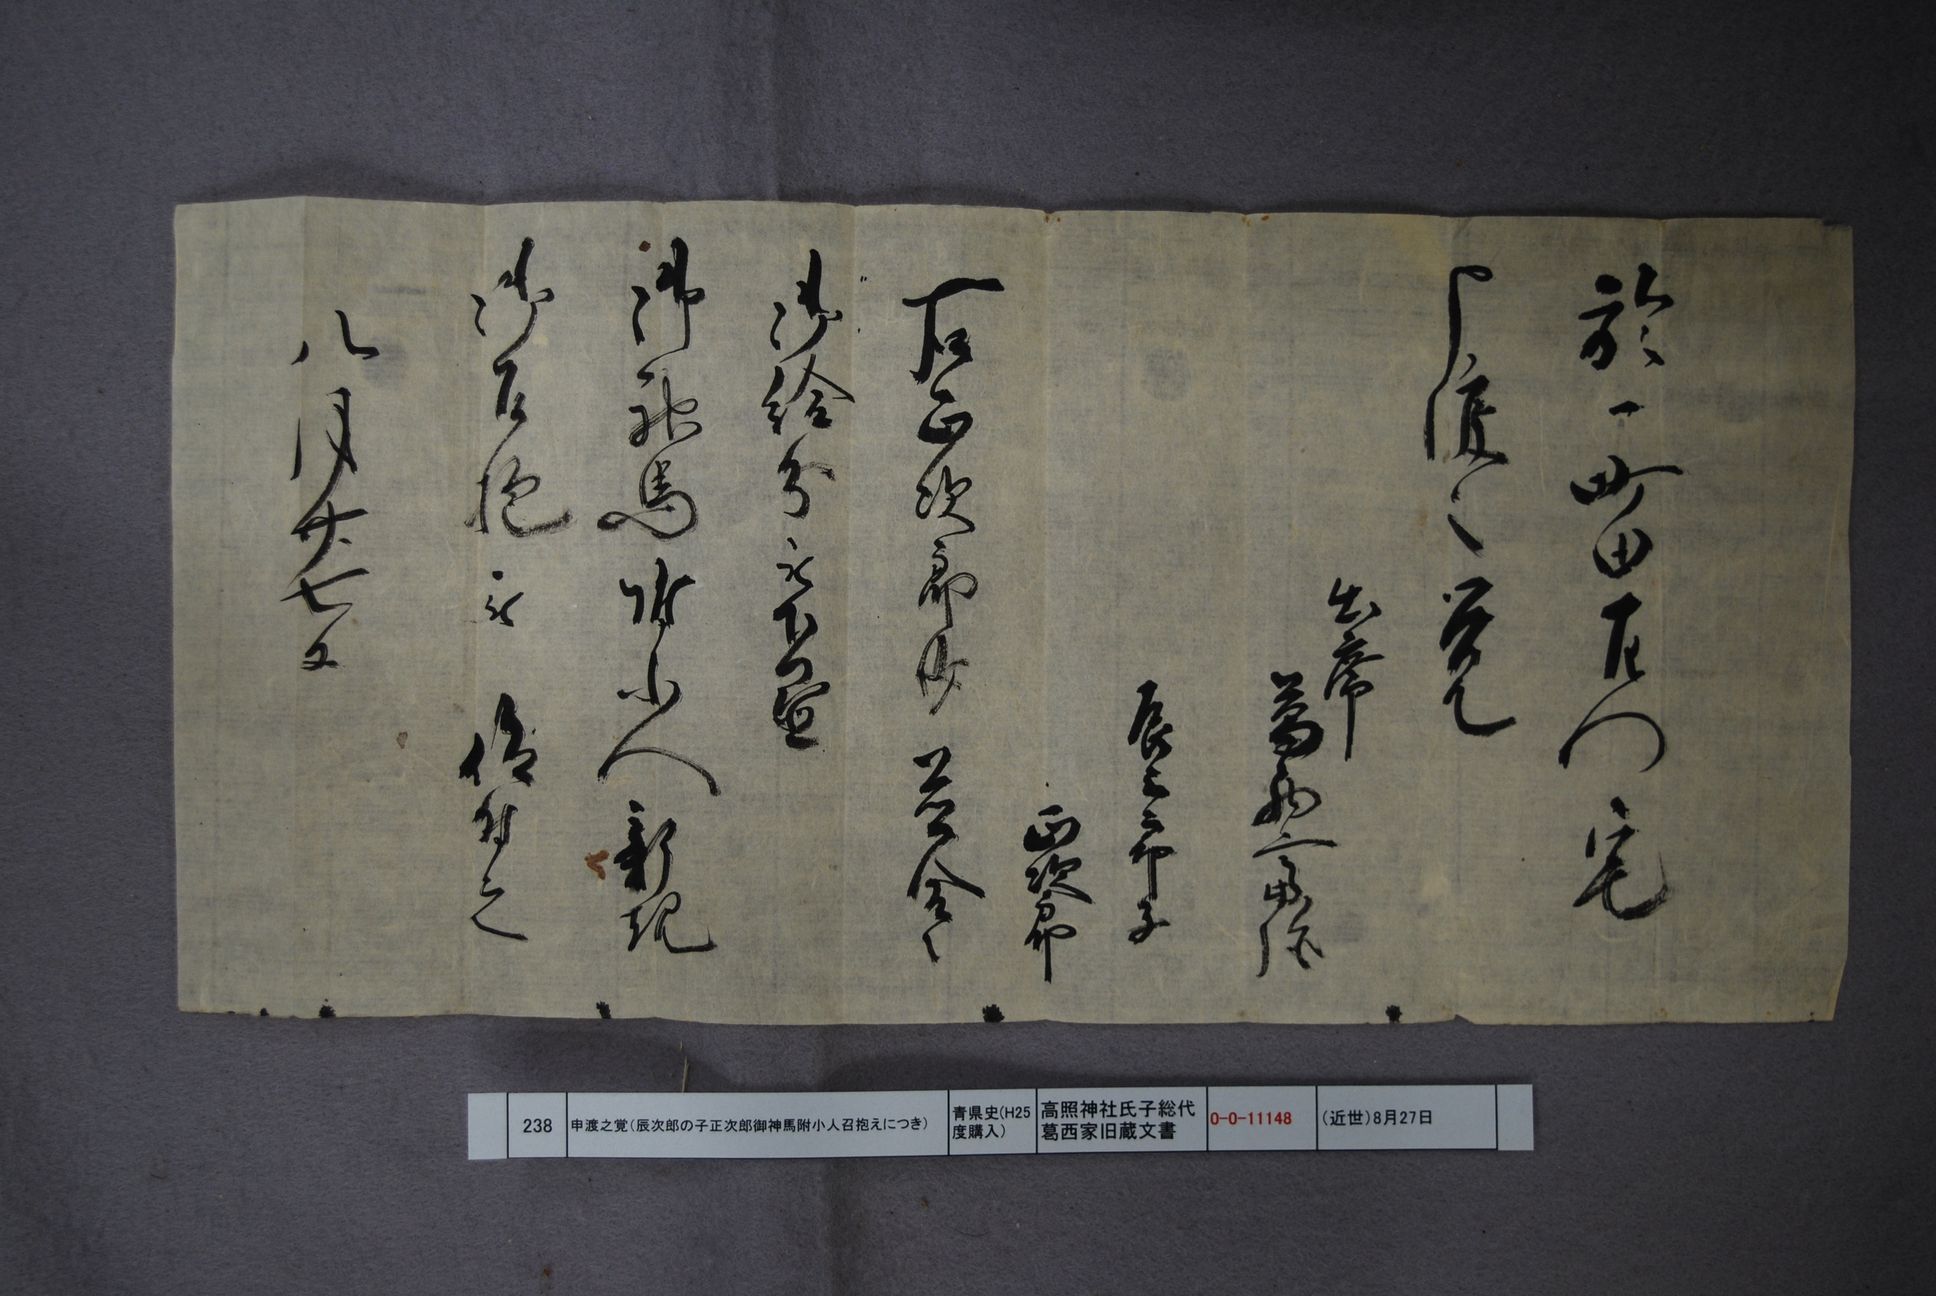 於一町田左門宅
申渡之覚
出席
葛西富次
辰三郎子
正次郎
右正次郎身
御給分被下置
御神馬附小人新規
御召抱被 仰付之
八月廿七日
238
申渡之覚(辰次郎の子正次郎御神馬附小人召抱えにつき)
青県史(H25
度購入)
高照神社氏子総代
葛西家旧蔵文書
0-0-11148
(近世)8月27日